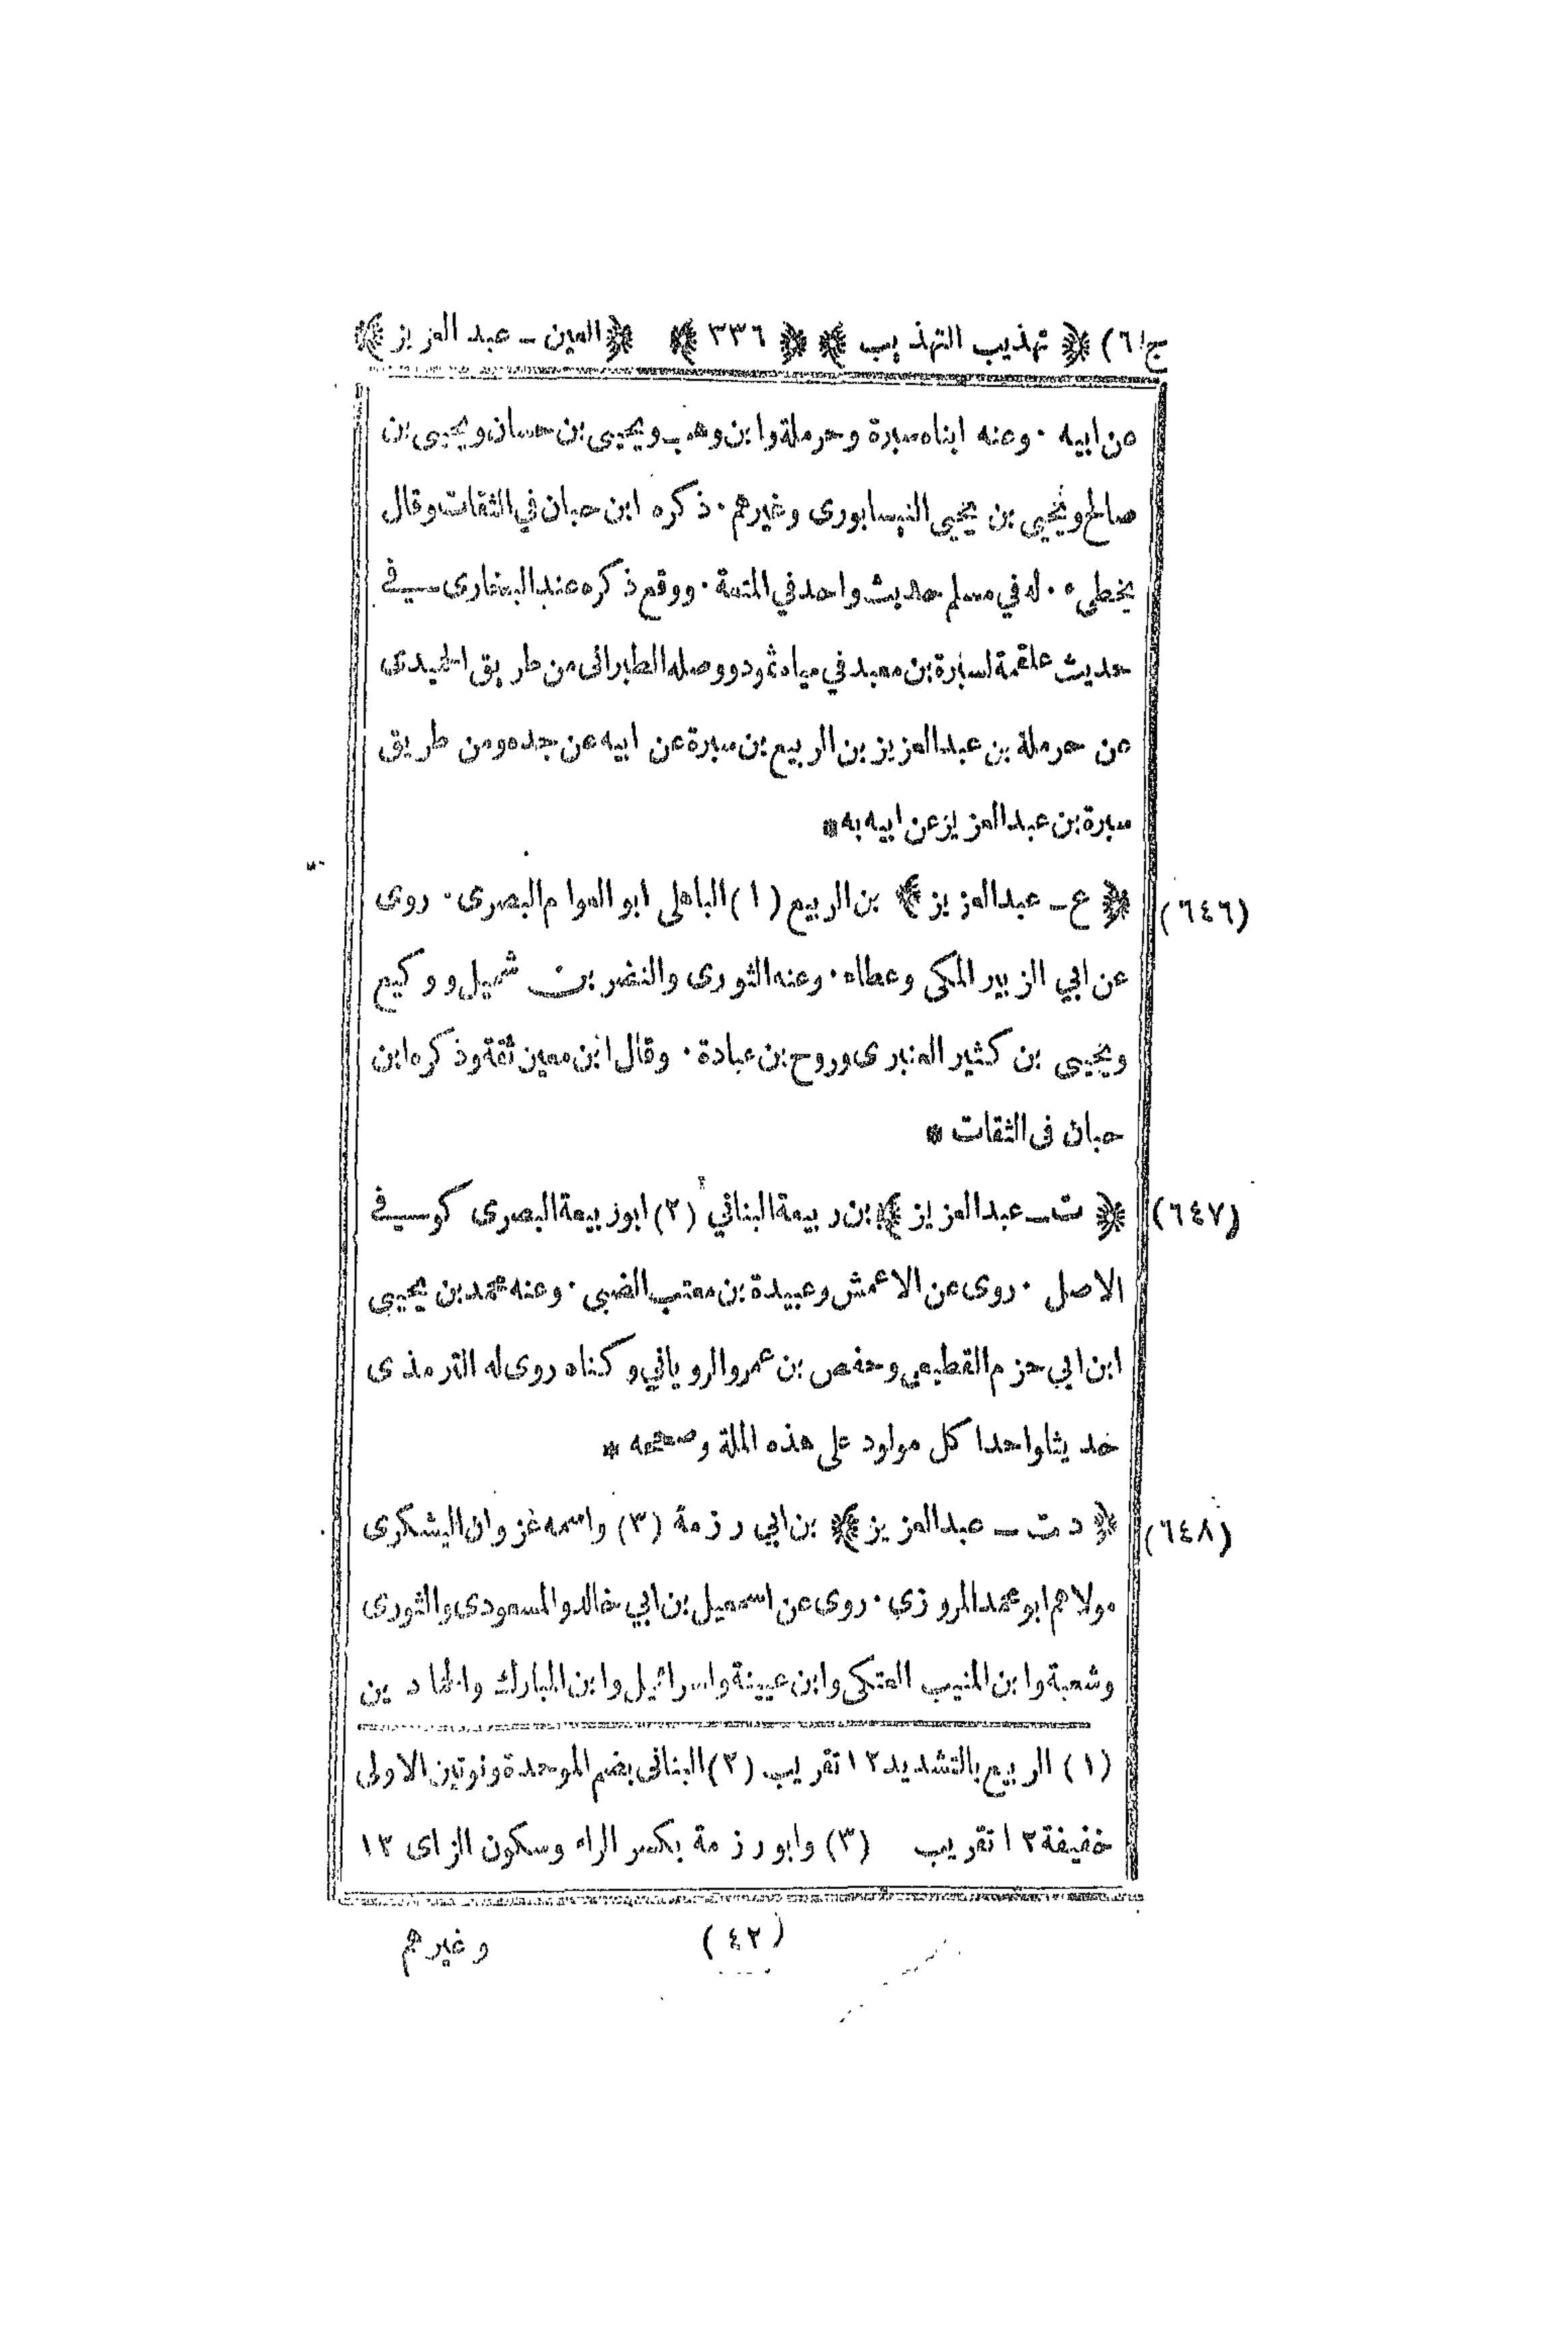 ج (٦) ﴿ تهذيب التهذيب ﴾ ﴿ ٣٣٦ ﴾ ﴿ العين ـ عبد العزيز ﴾
عن ابيه ٠ وعنه ابناه سبرة وحرملة وابن وهب ويحيى بن حسان ويحيى بن
صالح ويحيى بن يحيى النيسابورى وغيرهم ٠ ذكره ابن حبان في الثقات وقال
يخطىء ٠ له في مسلم حديث واحد في المتعة ٠ ووقع ذكره عند البخارى في
حديث علقمة لسبرة بن معبد في مياه ثمود ووصله الطبرانى من طريق الحميدى
عن حرملة بن عبد العزيز بن الربيع بن سبرة عن ابيه عن جده ومن طريق
سبرة بن عبد العزيز عن ابيه به *
(٦٤٦) ﴿ ع ـ عبد العزيز ﴾ بن الربيع (١) الباهلى ابو العوام البصرى ٠ روى
عن ابي الزبير المكى وعطاء ٠ وعنه الثورى والنضر بن شميل ووكيع
ويحيى بن كثير العنبرى وروح بن عبادة ٠ وقال ابن معين ثقة وذكره ابن
حبان فى الثقات *
(٦٤٧) ﴿ ت ـ عبد العزيز ﴾ بن ربيعة البناني (٢) ابو ربيعة البصرى كوفى
الاصل ٠ روى عن الاعمش وعبيدة بن معتب الضبي ٠ وعنه محمد بن يحيى
ابن ابي حزم القطيعي وحفص بن عمرو الرويانى وكناه روى له الترمذى
حديثا واحدا كل مولود على هذه الملة وصححه *
(٦٤٨) ﴿ د ت ـ عبد العزيز ﴾ بن ابي رزمة (٣) واسمه غزوان اليشكرى
مولاهم ابو محمد المروزي ٠ روى عن اسمعيل بن ابي خالد والمسعودى والثورى
وشعبة وابن المنيب العتكى وابن عيينة واسرائيل وابن المبارك والحمادين
(١) الربيع بالتشديد ١٢ تقريب (٢) البنانى بضم الموحدة ونونين الاولى
خفيفة ١٢ تقريب (٣) وابو رزمة بكسر الراء وسكون الزاى ١٢
(٤٢) وغيرهم